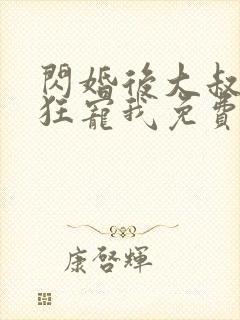 閃婚後大叔
狂寵我免費
康啓輝